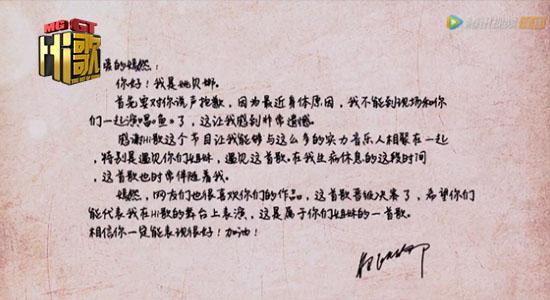 MG GT
Hi歌
腾讯视频
亲爱的嫣然：
你好！我是姚贝娜。
首先要对你说声抱歉，因为最近身体原因，我不能到现场和你
们一起演唱《鱼》了，这让我感到非常遗憾。
感谢Hi歌这个节目让我能够与这么多的实力音乐人相聚在一起
，特别是遇见你们姐妹，遇见这首歌。在我生病休息的这段时间
，这首歌也时常伴随着我。
嫣然，网友们也很喜欢你们的作品，这首歌晋级决赛了，希望你们
能代表我在Hi歌的舞台上表演，这是属于你们姐妹的一首歌。
相信你一定能表现很好！加油！